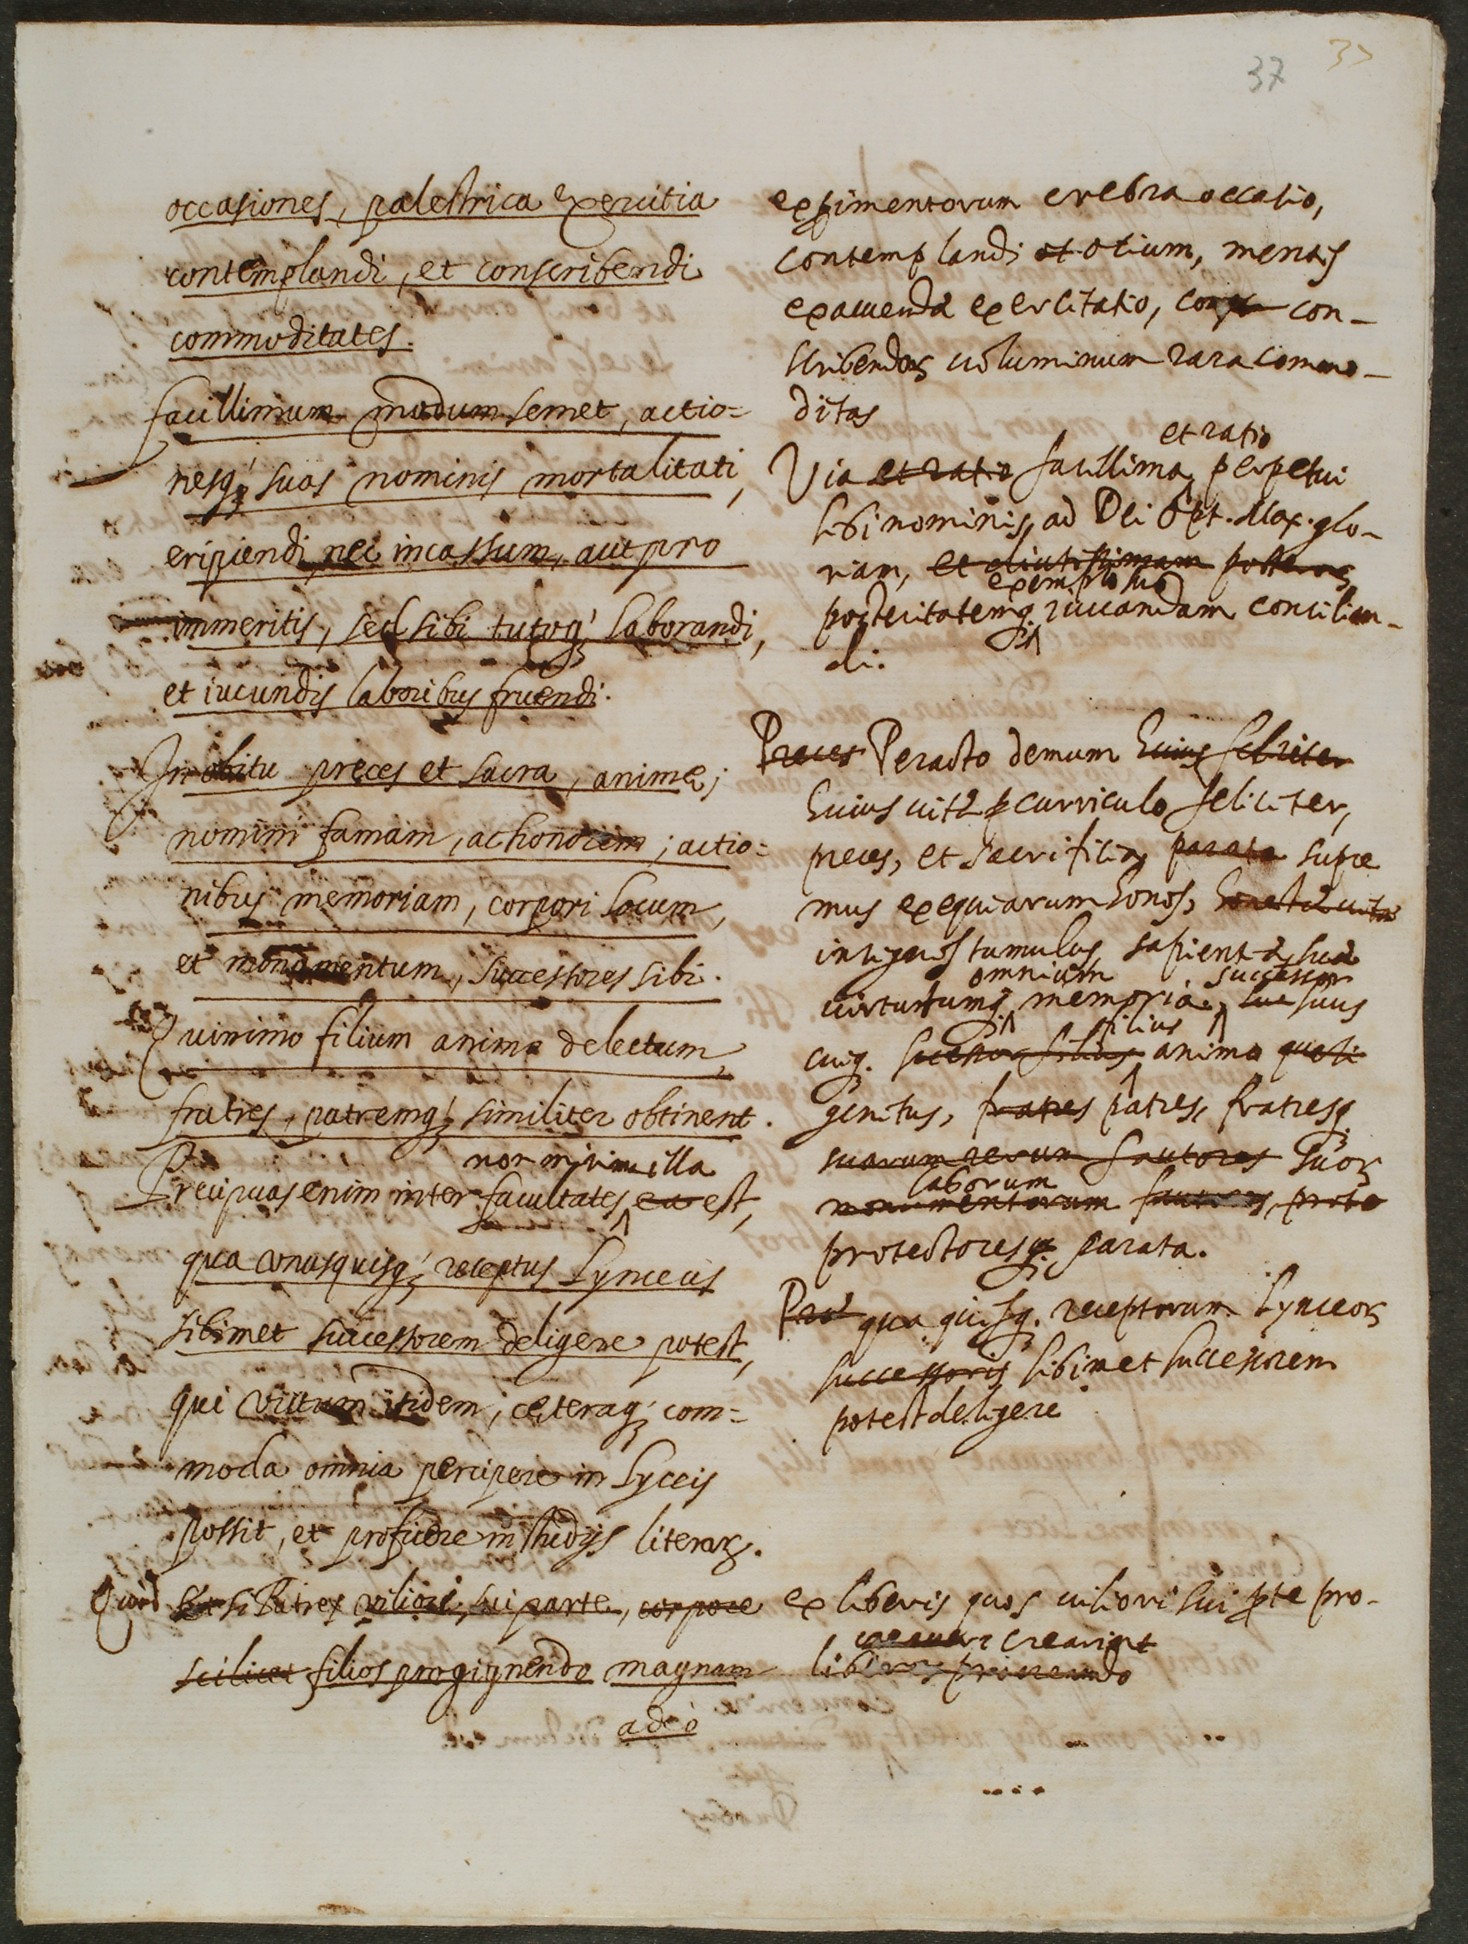 37
37
occasiones, palestrica exercitia
contemplandi, et conscribendi
commoditates.
facillimum modum semet, actio=
nesq; suas nominis mortalitati,
eripiendi, nec incassum, aut pro
immeritis, sed sibi tutoq; laborandi,
et iucundis laboribus fruendi.
In obitu preces et sacra, anime;
nomini famam, ac honorem; actio=
nibus memoriam, corpori locum,
et monumentum, successores sibi.
Quinimo filium animo delectum,
fratres, patremq; similiter obtinent.
non minima illa
Precipuas enim inter facultates ea est,
qua unusquisq; receptus Lynceus
sibimet successorem deligere potest,
qui victum itidem, ceteraq; com=
moda omnia percipere in Lyceis
possit, et proficere in studijs literar.
Quid si Patres viliori sui parte, corpore
scilicet filios progignendo magnam
adeò
expimentorum crebra occasio,
contemplandi et otium, mentis
exacuendæ exercitatio, con-
scribendor voluminum rara commo-
ditas
et ratio
Via et ratio facillima perpetui
sibi nominis, ad Dei Opt. Max. glo-
riam, et diutissimam posteros
exemplo suo
posteritatemq. iuvandam concilian-
di.
Preces Peracto demum huius feliciter
huius vitæ curriculo feliciter,
preces, et sacrificia, parata supre
mus exequiarum honos,
insignis tumulus, sapientiæ suæ
omnium successor
virtutumq. memoria, suus
filius
cuiq. successor filius animo
genitus, fratres patres, fratresq.
suarum rerum fautores suor
laborum
monumentorum fautores, prote
protectoresq. parata.
qua quisq. receptorum Lynceor
successoris sibimet successorem
potest deligere
ex liberis quos viliori sui pte pro-
crearint
liberos procreando